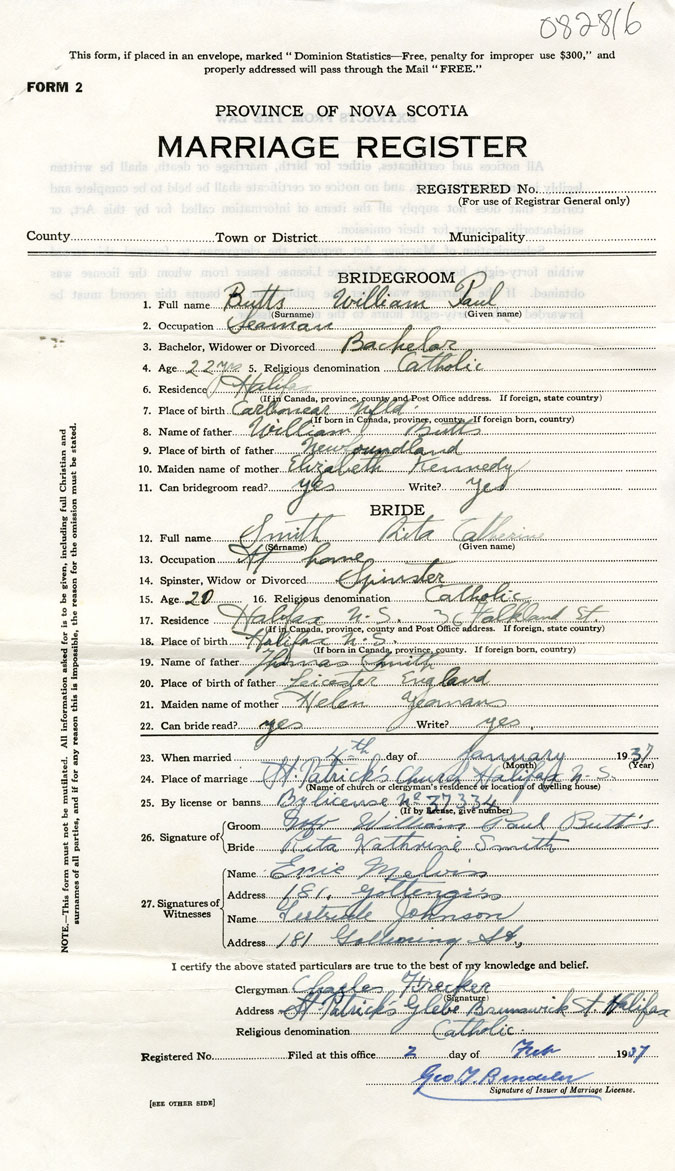 082816
This form, if placed in an envelope, marked "Dominion Statistics—Free, penalty for improper use $300," and
properly addressed will pass through the Mail "FREE."
FORM 2
PROVINCE OF NOVA SCOTIA
MARRIAGE REGISTER
REGISTERED No.
(For use of Registrar General only)
County Town or District Municipality
BRIDEGROOM
1. Full name Butts William Paul
(Surname) (Given name)
2. Occupation Seaman
3. Bachelor, Widower or Divorced Bachelor
4. Age 22 yrs 5. Religious denomination Catholic
6. Residence Halifax
(If in Canada, province, county and Post Office address. If foreign, state country)
7. Place of birth Carbonear Nfld.
(If born in Canada, province, county. If foreign born, country)
8. Name of father William Butts
9. Place of birth of father Newfoundland
10. Maiden name of mother Elizabeth Kennedy
11. Can bridegroom read? yes Write? Yes
BRIDE
12. Full name Smith Rita Catherine
(Surname) (Given name)
13. Occupation At home
14. Spinster, Widow or Divorced Spinster
15. Age 20 16. Religious denomination Catholic
17. Residence Halifax N.S. 36 Falkland St.
(If in Canada, province, county and Post Office address. If foreign, state country)
18. Place of birth Halifax N.S.
(If born in Canada, province, county. If foreign born, country)
19. Name of father Thomas Smith
20. Place of birth of father Leicester England
21. Maiden name of mother Helen Yeomans
22. Can bride read? yes Write? yes
23. When married 4th day of January 1937
(Month) (Year)
24. Place of marriage St. Patrick's Church Halifax N.S.
(Name of church or clergyman's residence or location of dwelling house)
25. By license or banns By license No 37334
(If by license, give number)
26. Signature of Groom William Paul Butt's
Bride Rita Kathrine Smith
27. Signatures of Witnesses Name Eric Melvin
Address 181,
Name Gertrude Johnson
Address 181 St.,
I certify the above stated particulars are true to the best of my knowledge and belief.
Clergyman Charles
(Signature)
Address St Patrick's Glebe Brunswick St. Halifax
Religious denomination Catholic
Registered No. Filed at this office 2 day of Feb 1937
Geo
Signature of Issuer of Marriage License.
[SEE OTHER SIDE]
NOTE.—This form must not be mutilated. All information asked for is to be given, including full Christian and
surnames of all parties, and if for any reason this is impossible, the reason for the omission must be stated.